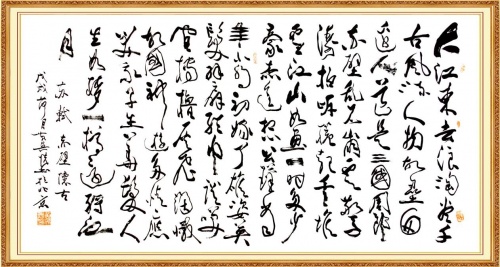 大江東去浪淘尽千
古風流人物故壘西
邊人道是三國周郎
赤壁亂石崩雲驚
濤拍岸捲起千堆
雪江山如畫一時多少
豪杰遥想公瑾當
年小喬初嫁了雄姿英
發羽扇綸巾談笑
間檣櫓灰飛烟滅
故國神遊多情應
笑我早生華髮人
生如夢一樽還酹江
月
蘇軾 赤壁懷古
戊戌